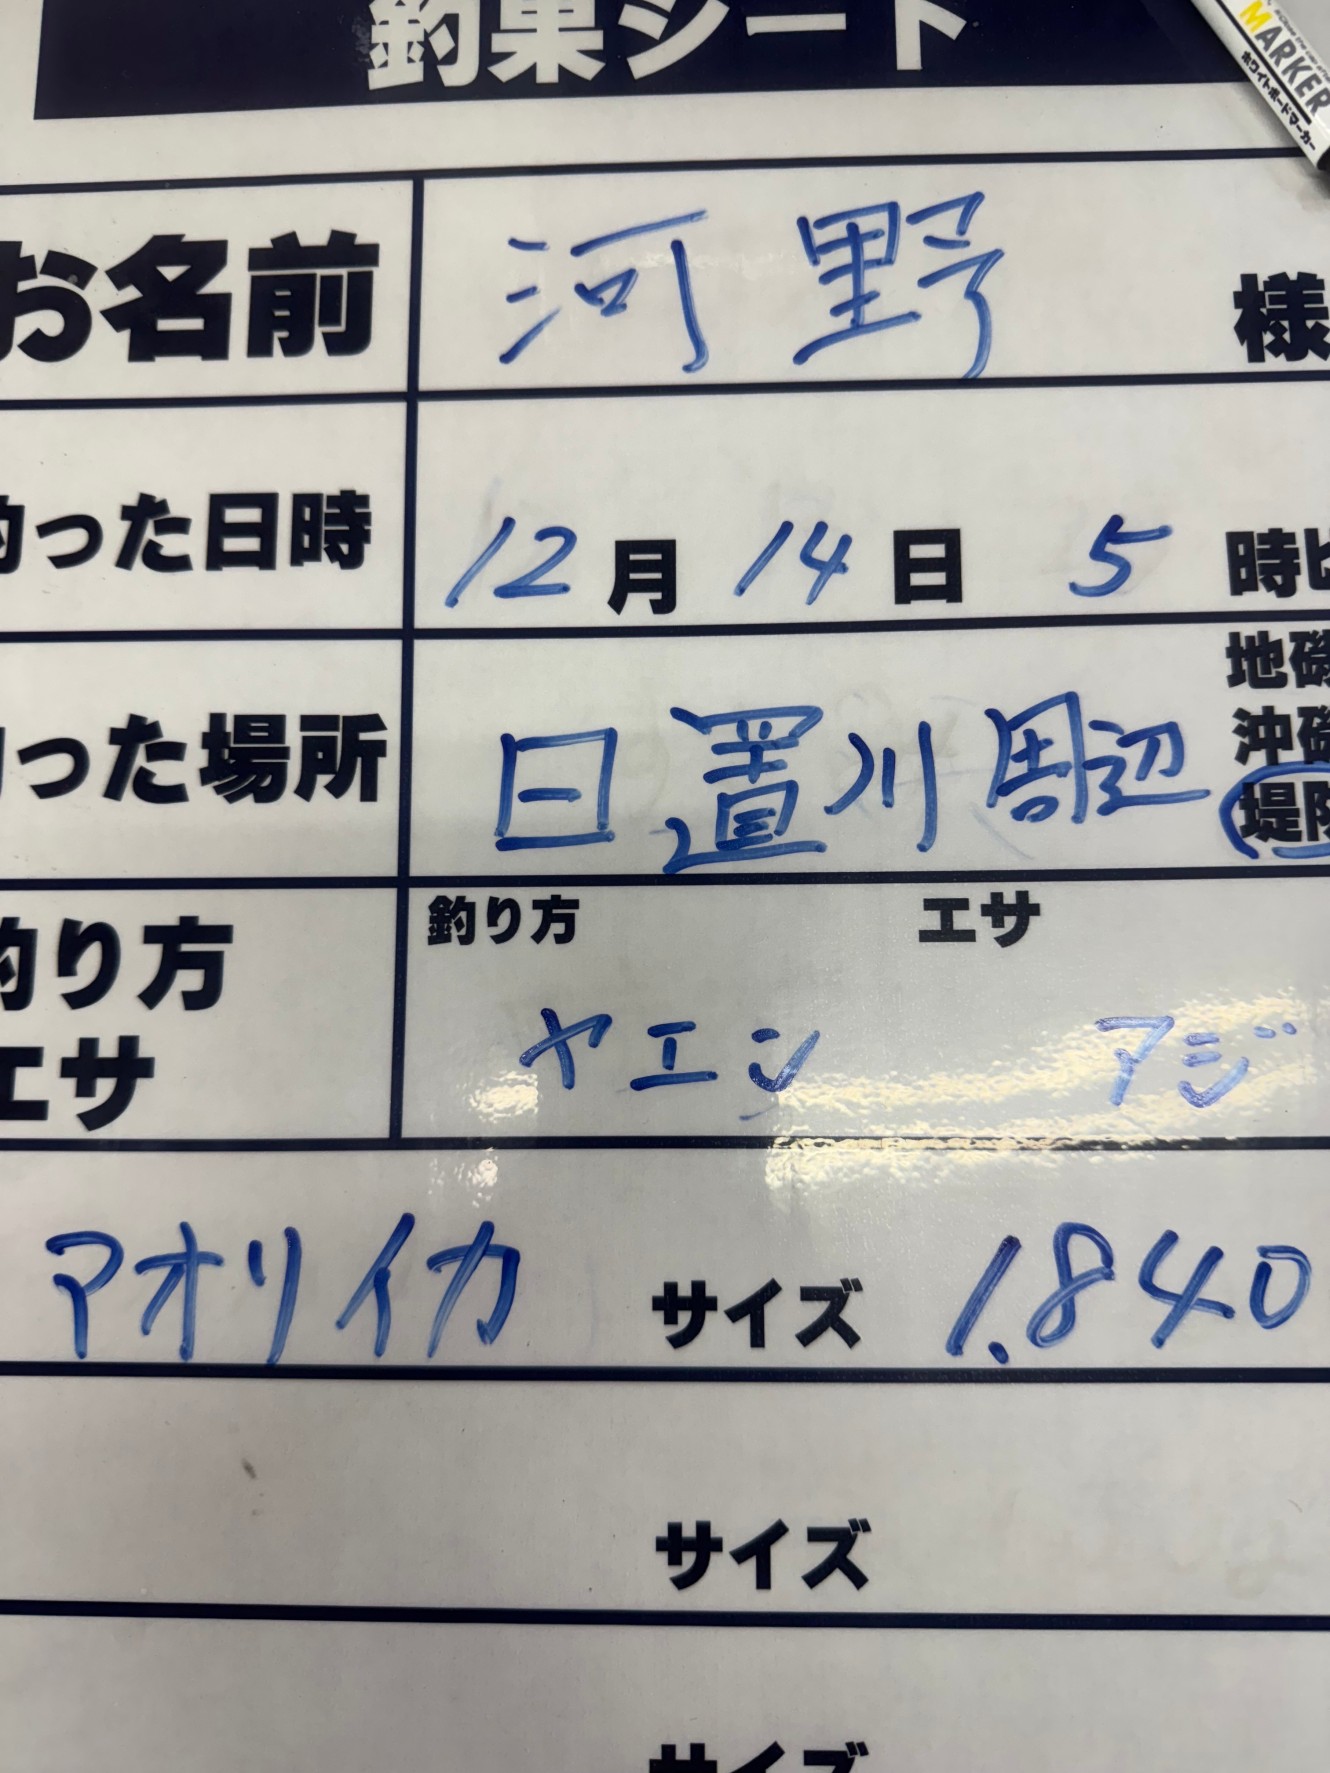 釣果シート
MARKER
ホワイトボードマーカー
お名前 河野 様
釣った日時 12月14日 5時
釣った場所 日置川周辺
地磯
沖磯
堤防
釣り方
エサ
釣り方 エサ
ヤエン アジ
アオリイカ サイズ 1.840
サイズ
サイズ